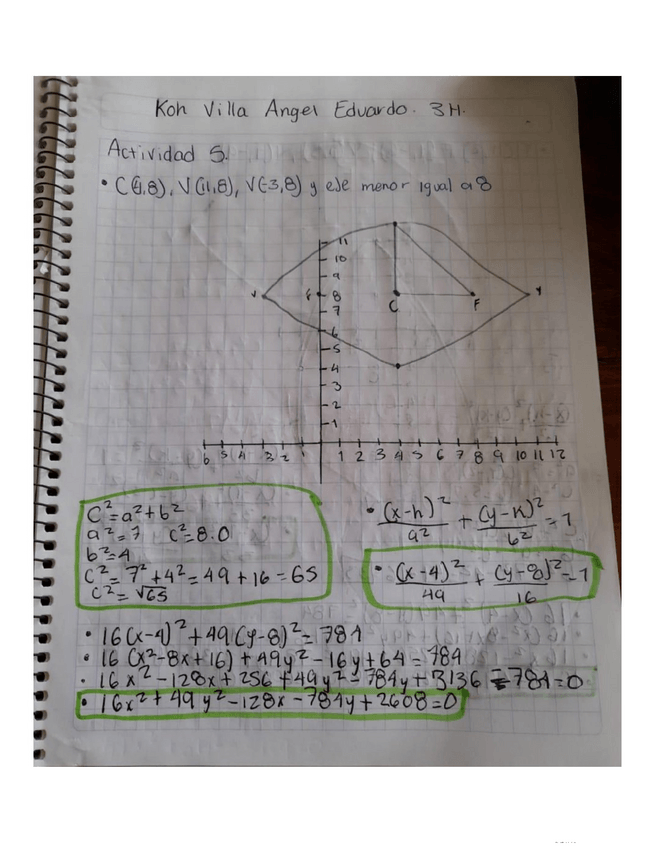 Koh Villa Angel Eduardo. 3H.
Actividad 5.
• C(4,8), V(11,8), V(-3,8) y eje menor igual a 8
11
10
9
V F 8 C F V
7
6
5
4
3
2
1
6 5 4 3 2 1 1 2 3 4 5 6 7 8 9 10 11 12
C²=a²+b²
a²=7 c²=8.0
b²=4
C²=7²+4²=49+16=65
C²=√65
• (x-h)²/a² + (y-k)²/b² =1
• (x-4)²/49 + (y-8)²/16 =1
• 16(x-4)²+49(y-8)²=784
• 16(x²-8x+16)+49y²-16y+64=784
• 16x²-128x+256+49y²-784y+3136=784=0
• 16x²+49y²-128x-784y+2608=0